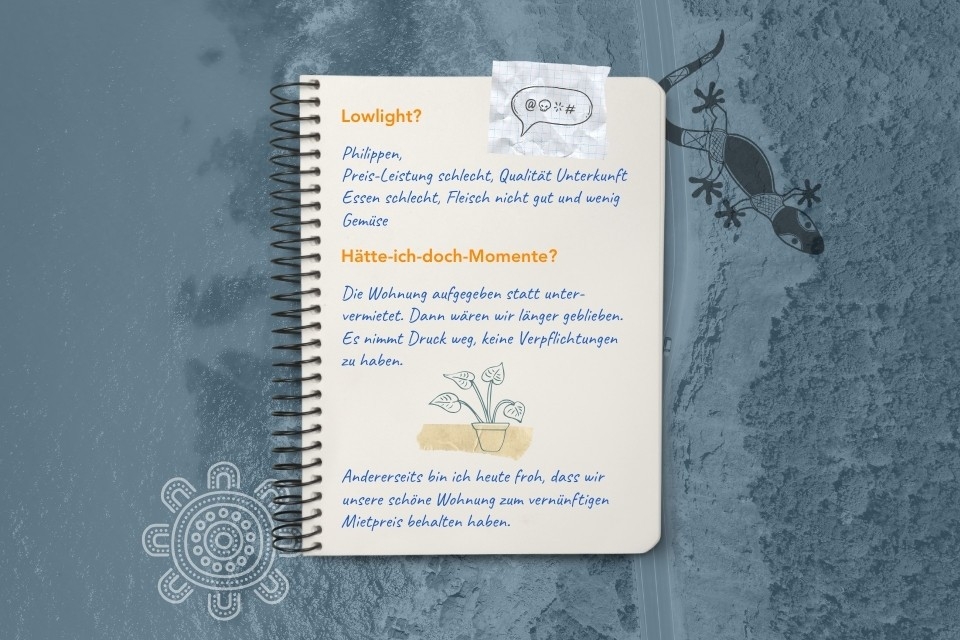 @ #
Lowlight?
Philippen,
Preis-Leistung schlecht, Qualität Unterkunft
Essen schlecht, Fleisch nicht gut und wenig
Gemüse
Hätte-ich-doch-Momente?
Die Wohnung aufgegeben statt unter-
vermietet. Dann wären wir länger geblieben.
Es nimmt Druck weg, keine Verpflichtungen
zu haben.
Andererseits bin ich heute froh, dass wir
unsere schöne Wohnung zum vernünftigen
Mietpreis behalten haben.